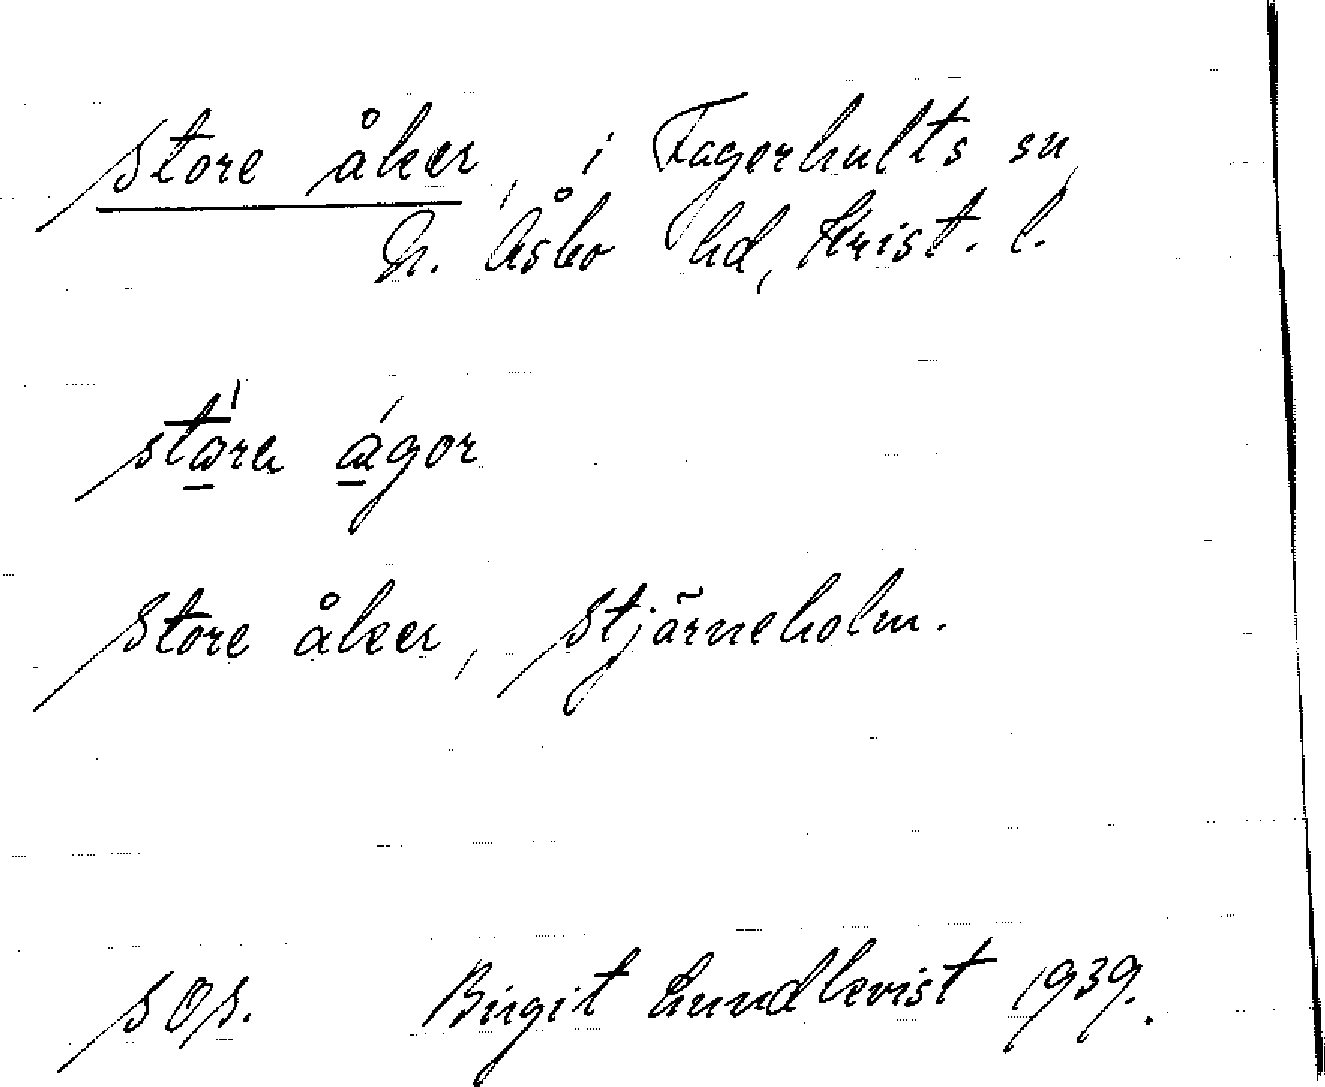 Store åker, i Fagerhults sn,
N. Åsbo hd, Krist. l.
stora ågor
Store åker, Stjärneholm.
Birgit Lundkvist 1939.